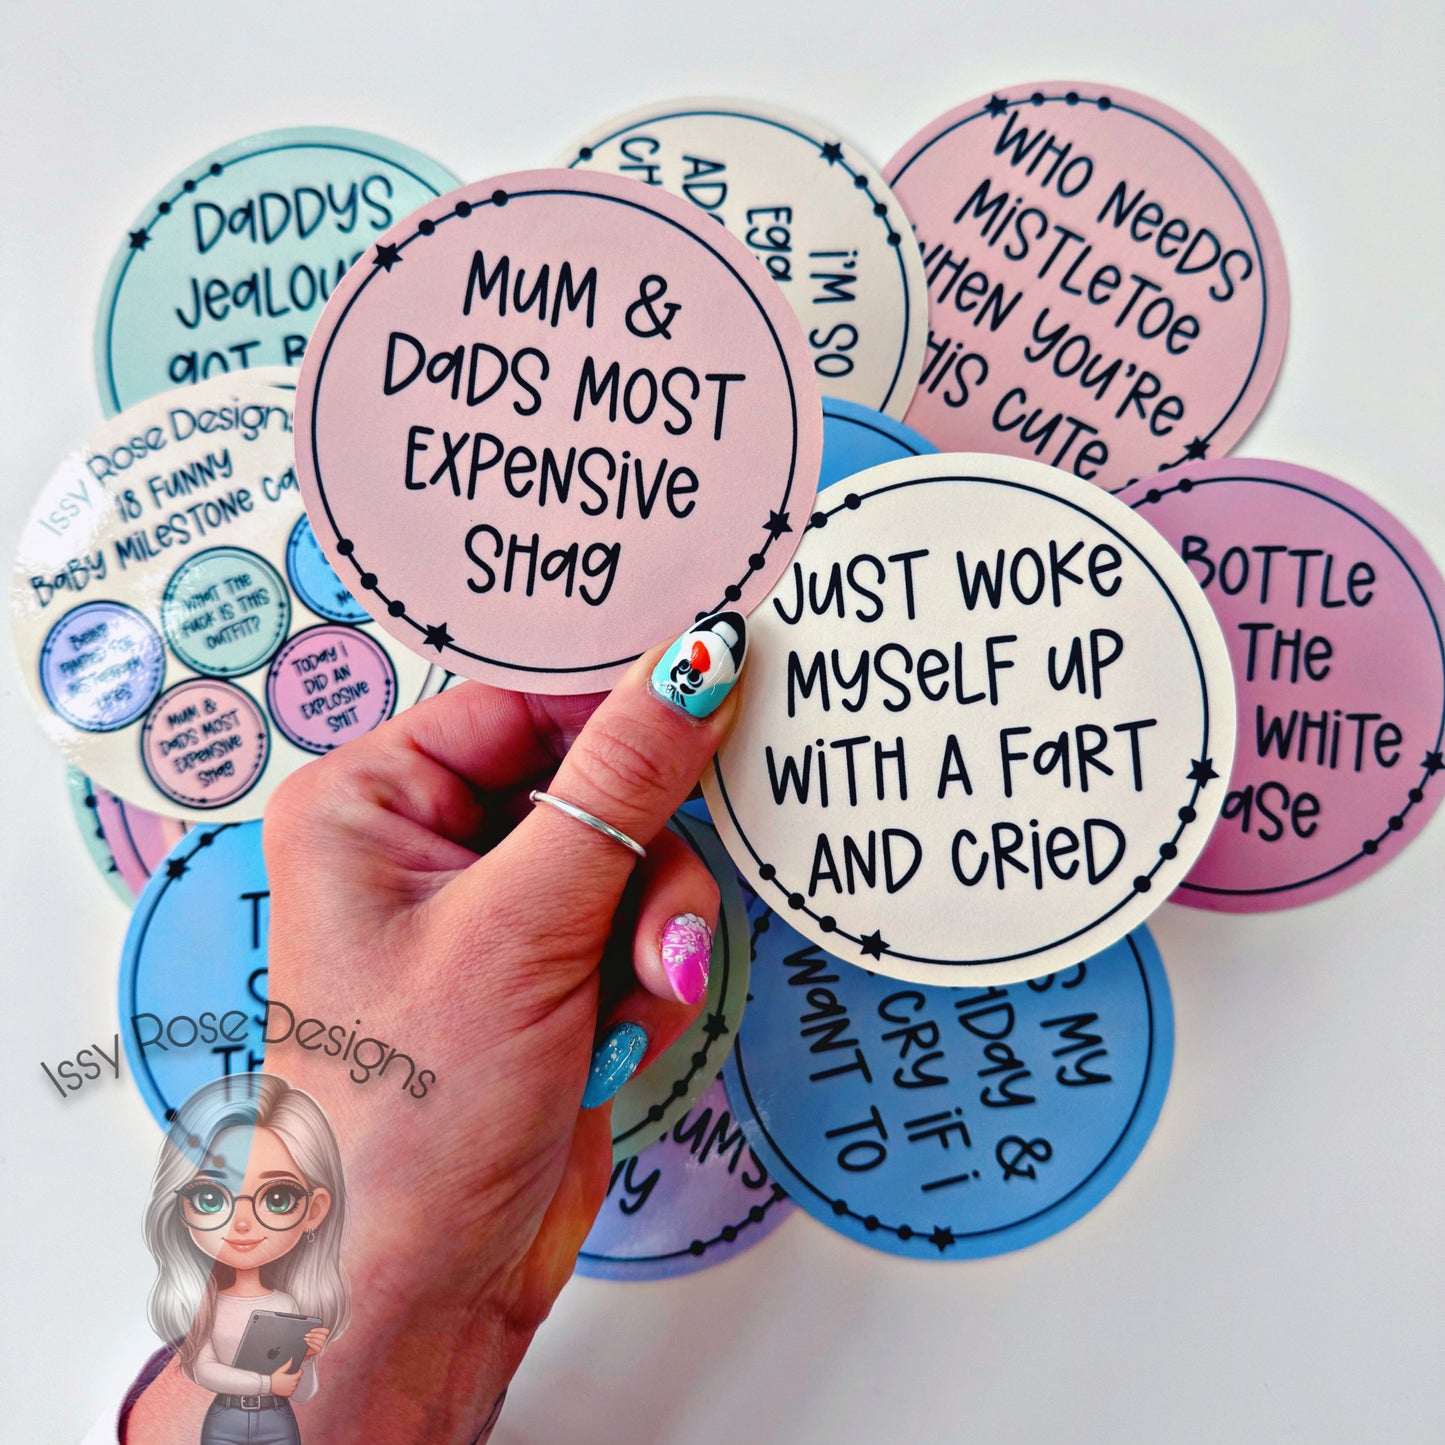 DaDDYS
JeaLOU
GOT B
MUM &
DaDS MOST
EXPeNSiVe
SHag
i'M SO
Ega
AD
CH
WHO NeeDS
MiSTLeTOe
WHeN YOU'Re
THiS CUTe
Issy Rose Designs
18 FUNNY
BaBY MiLeSTONe Ca
BeiNg
WHaT THe
FUCK iS THiS
OUTFiT?
MUM &
DaDS MOST
EXPeNSiVe
SHag
TODaY i
DiD aN
EXPLOSiVe
SHiT
JUST WOKe
MYSeLF UP
WiTH A FaRT
AND CRieD
BOTTLe
THe
WHiTe
ase
T
S
TH
S MY
HDaY &
CRY iF i
WaNT TO
UMS
Y
Issy Rose Designs